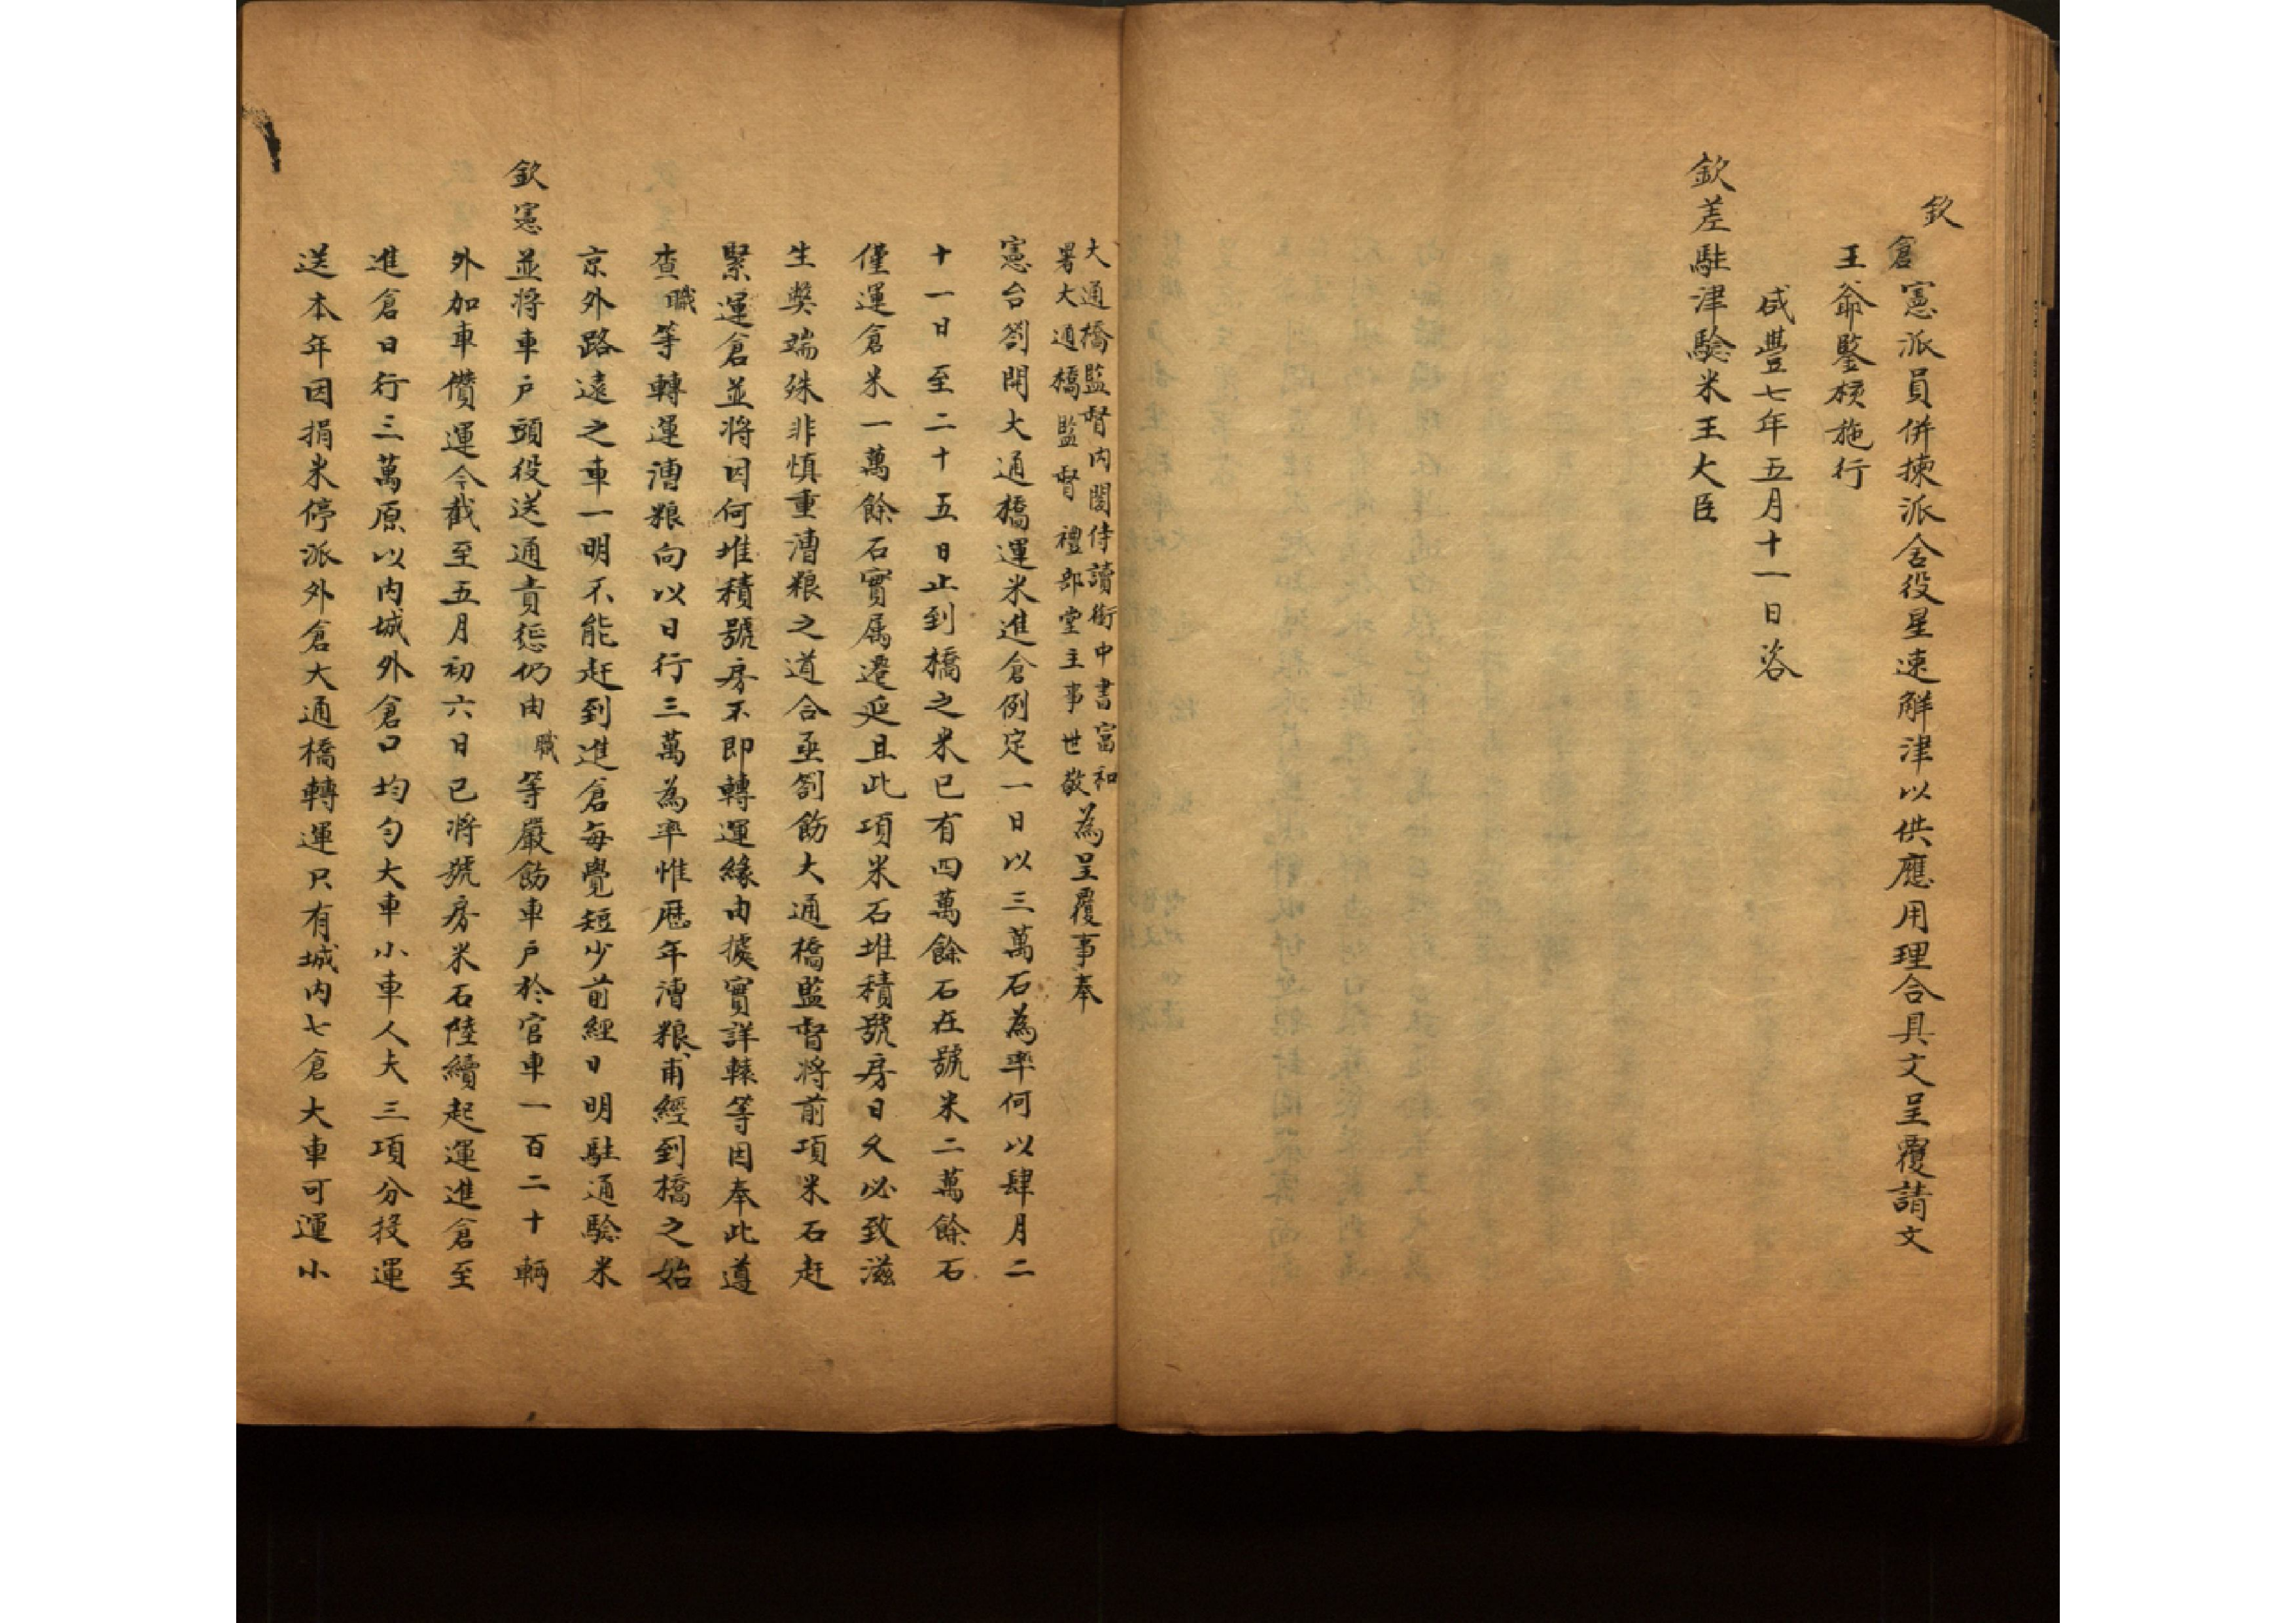 欽
倉憲派員併揀派舍役星速解津以供應用理合具文呈覆請文
王爺鑒核施行
咸豐七年五月十一日咨
欽差駐津驗米王大臣
大通橋監督內閣侍讀銜中書富和
署大通橋監督禮部堂主事世敬
為呈覆事奉
憲台劄開大通橋運米進倉例定一日以三萬石為率何以肆月二
十一日至二十五日止到橋之米已有四萬餘石在號米二萬餘石
僅運倉米一萬餘石實属遷延且此項米石堆積號房日久必致滋
生獘端殊非慎重漕粮之道合亟劄飭大通橋監督將前項米石赶
緊運倉並將因何堆積號房不即轉運緣由據實詳轅等因奉此遵
查職等轉運漕粮向以日行三萬為率惟歷年漕粮甫經到橋之始
京外路遠之車一明不能赶到進倉每覺短少前經日明駐通驗米
欽憲並將車戶頭役送通責懲仍由職等嚴飭車戶於官車一百二十輛
外加車儹運今截至五月初六日已將號房米石陸續起運進倉至
進倉日行三萬原以內城外倉口均勻大車小車人夫三項分投運
送本年因捐米停派外倉大通橋轉運只有城內七倉大車可運小